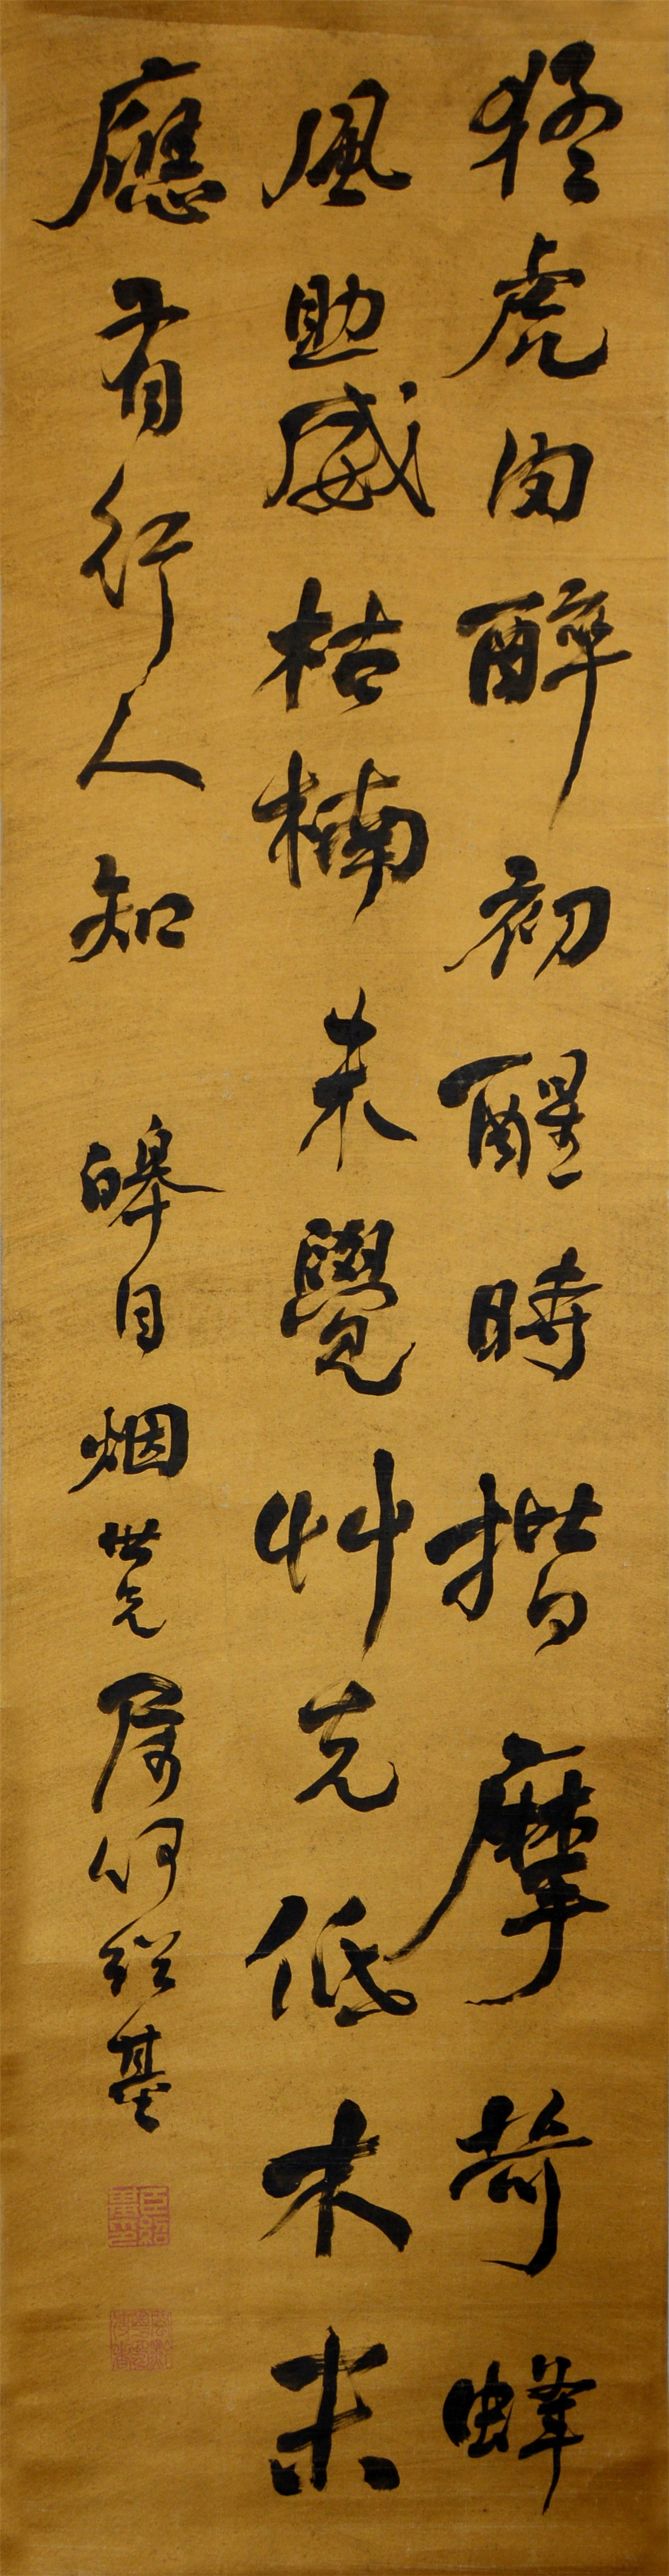 猛虎肉醉初醒時揩摩苛蛘
風助威枯楠未覺艸先低木末
應有行人知 烟世兄屬何紹基